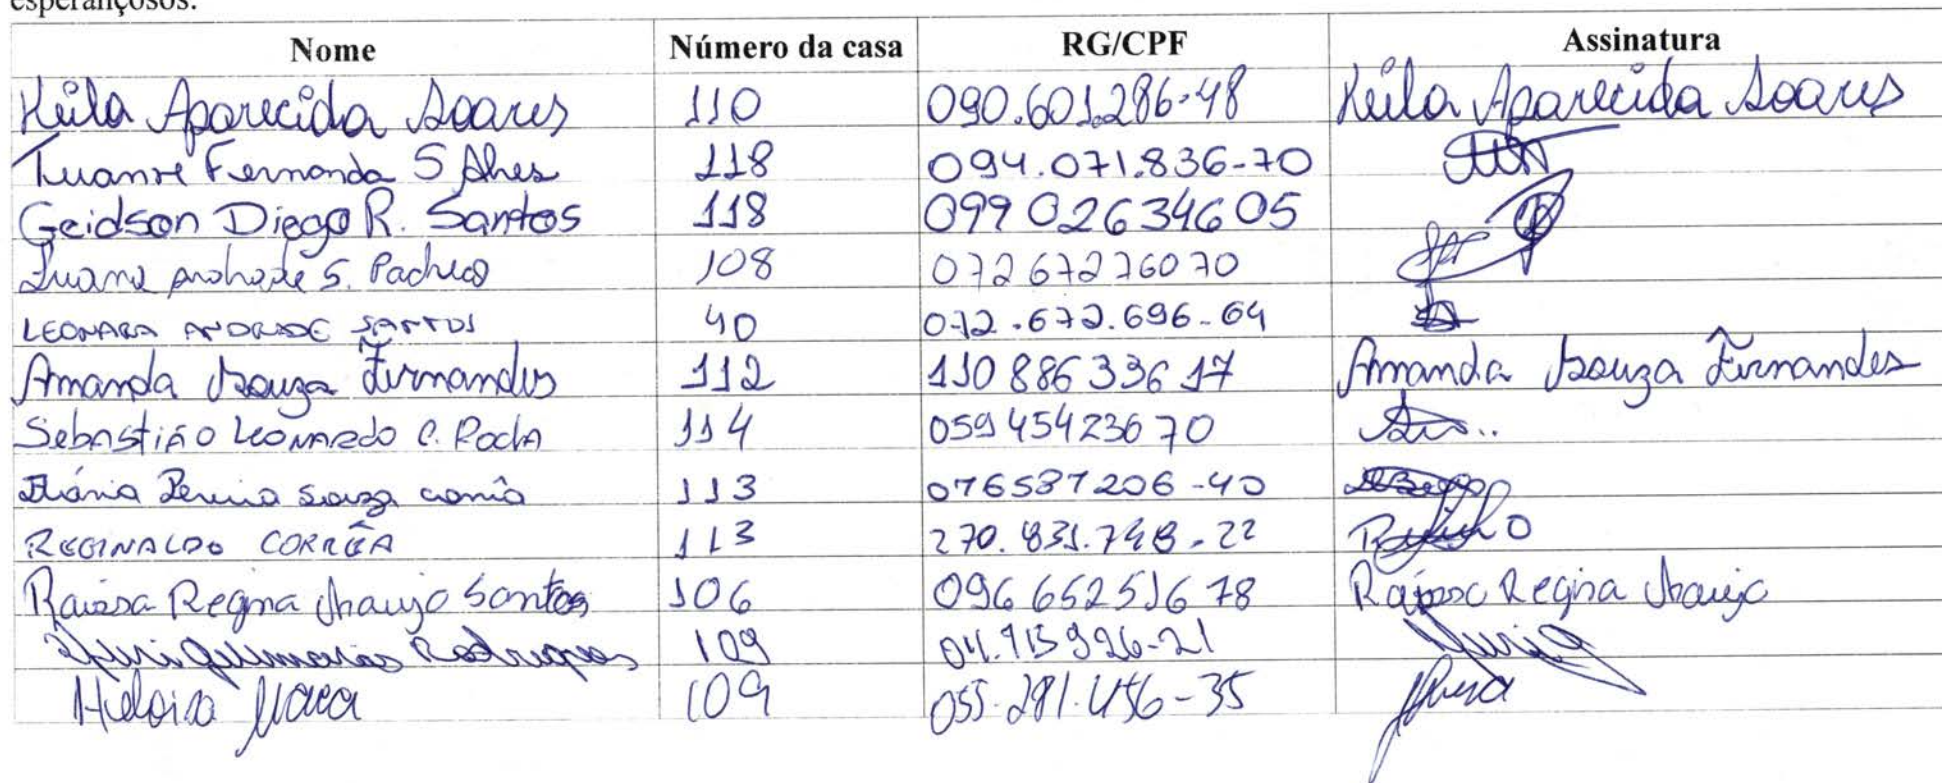 esperançosos.
Nome Número da casa RG/CPF Assinatura
Keila Aparecida Soares 110 090.601.286-48 Keila Aparecida Soares
Fernanda S Alves 118 094.071.836-70
Geidson Diego R. Santos 118 099 026 346 05
S. Pacheco 108
LEONARA ANDRADE SANTOS 40 072.672.696-64
Amanda Souza Fernandes 112 110 886 336 17 Amanda Souza Fernandes
Sebastião Leonardo C. Rocha 114 059 454 236 70
Souza 113 076587206-40
REGINALDO CORRÊA 113
Raissa Regina Araujo Santos 106 096 652 516 78 Raissa Regina Araujo
Guimarães Rodrigues 109
Heloisa 109 055.281.456-35